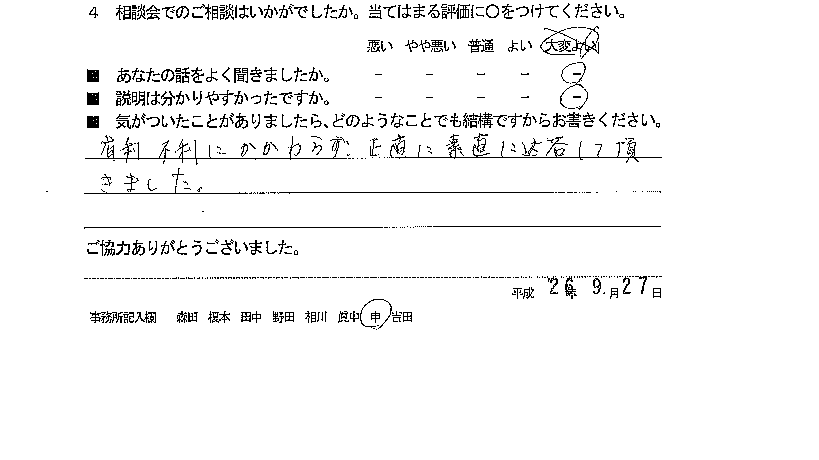 4 相談会でのご相談はいかがでしたか。当てはまる評価に○をつけてください。
悪い やや悪い 普通 よい 大変よい
■ あなたの話をよく聞きましたか。 － － － － －
■ 説明は分かりやすかったですか。 － － － － －
■ 気がついたことがありましたら、どのようなことでも結構ですからお書きください。
有利 不利にかかわらず 正直に素直に返答して頂
きました。
ご協力ありがとうございました。
平成 26年 9.月27日
事務所記入欄 森田 榎本 田中 野田 相川 眞中 申 吉田